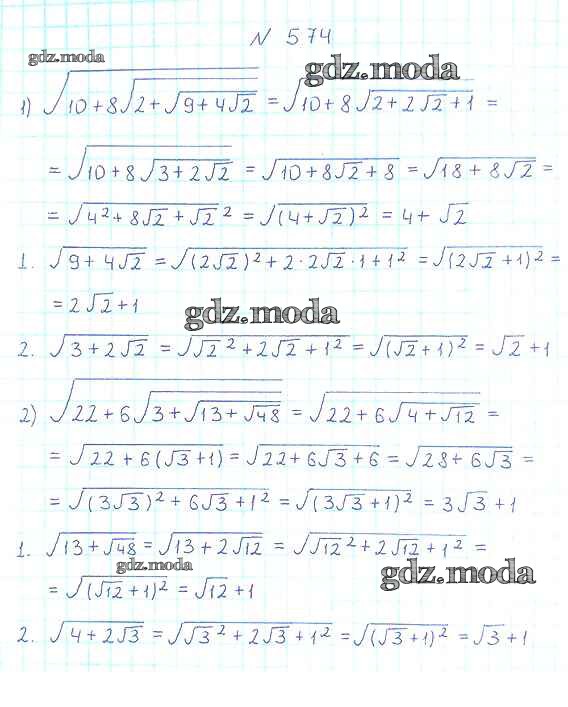 N 574
gdz.moda
gdz.moda
1) √(10+8√(2+√(9+4√2))) = √(10+8√(2+2√2+1)) =
= √(10+8√(3+2√2)) = √(10+8√2+8) = √(18+8√2) =
= √(4²+8√2+√2²) = √((4+√2)²) = 4+√2
1. √(9+4√2) = √((2√2)²+2·2√2·1+1²) = √((2√2+1)²) =
= 2√2+1
gdz.moda
2. √(3+2√2) = √(√2²+2√2+1²) = √((√2+1)²) = √2+1
2) √(22+6√(3+√(13+√48))) = √(22+6√(4+√12)) =
= √(22+6(√3+1)) = √(22+6√3+6) = √(28+6√3) =
= √((3√3)²+6√3+1²) = √((3√3+1)²) = 3√3+1
1. √(13+√48) = √(13+2√12) = √(√12²+2√12+1²) =
gdz.moda
gdz.moda
= √((√12+1)²) = √12+1
2. √(4+2√3) = √(√3²+2√3+1²) = √((√3+1)²) = √3+1